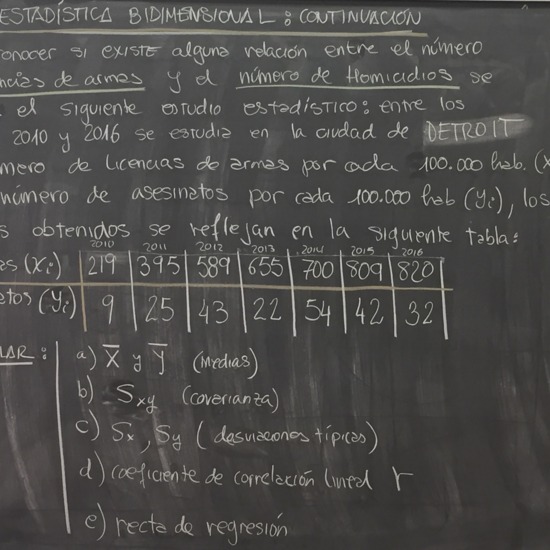 ESTADÍSTICA BIDIMENSIONAL: CONTINUACIÓN
onocer si EXISTE alguna relación entre el número
ncias de armas y el número de Homicidios se
el siguiente estudio estadístico: entre los
2010 y 2016 se estudia en la ciudad de DETROIT
mero de licencias de armas por cada 100.000 hab. (x
número de asesinatos por cada 100.000 hab (Yi), los
s obtenidos se reflejan en la siguiente tabla:
2010 2011 2012 2013 2014 2015 2016
es (Xi) 219 395 589 655 700 809 820
atos (Yi) 9 25 43 22 54 42 32
LAR:
a) X̅ y Y̅ (Medias)
b) Sxy (covarianza)
c) Sx, Sy (desviaciones típicas)
d) coeficiente de correlación lineal r
e) recta de regresión